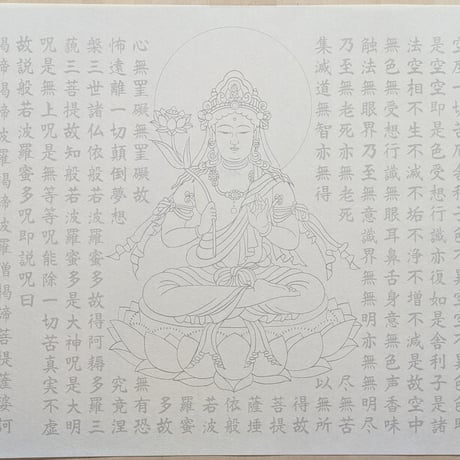 空度一切苦厄舎利子色不異空空不異色即
是空空即是色受想行識亦復如是舎利子是諸
法空相不生不滅不垢不浄不増不減是故空中
無色無受想行識無眼耳鼻舌身意無色声香味
触法無眼界乃至無意識界無無明亦無無明尽
乃至無老死亦無老死
尽無苦
集滅道無智亦無得
以無所
得故
菩提
薩埵
依般
若波
羅蜜
多故
心無罣礙無罣礙故
無有恐
怖遠離一切顛倒夢想
究竟涅
槃三世諸仏依般若波羅蜜多故得阿耨多羅三
藐三菩提故知般若波羅蜜多是大神呪是大明
呪是無上呪是無等等呪能除一切苦真実不虚
故説般若波羅蜜多呪即説呪曰
掲諦掲諦波羅掲諦波羅僧掲諦菩提薩婆訶